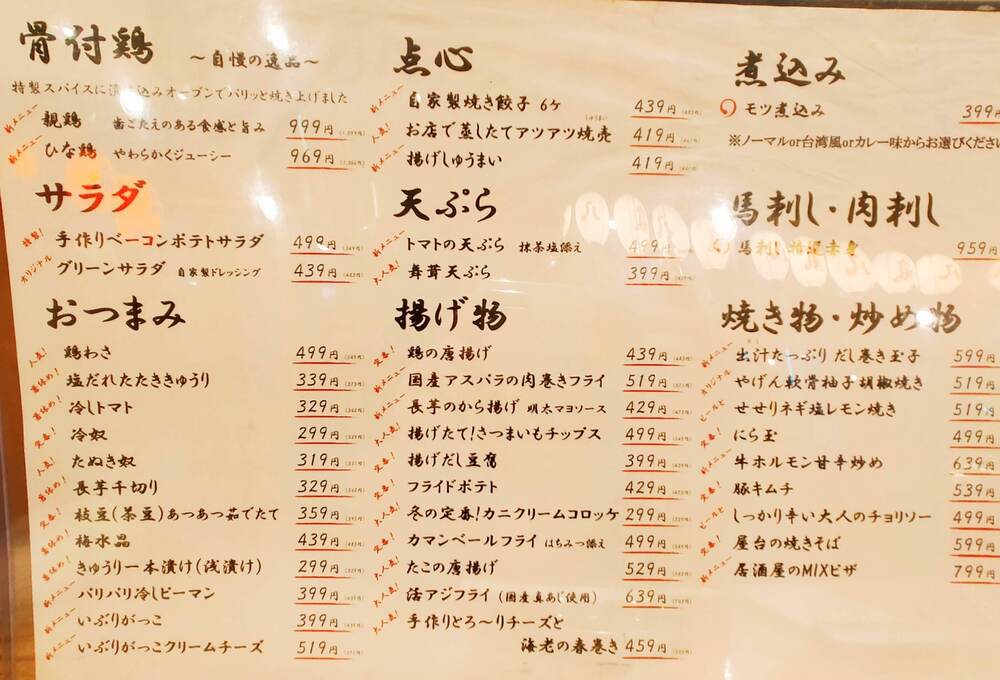 骨付鶏 ～自慢の逸品～
特製スパイスに漬け込みオーブンでパリッと焼き上げました
新メニュー 親鶏 歯ごたえのある食感と旨み 999円
新メニュー ひな鶏 やわらかくジューシー 969円
サラダ
特製! 手作りベーコンポテトサラダ 499円
オリジナル グリーンサラダ 自家製ドレッシング 439円
おつまみ
人気! 鶏わさ 499円
箸休め! 塩だれたたききゅうり 339円
箸休め! 冷しトマト 329円
定番! 冷奴 299円
人気! たぬき奴 319円
箸休め! 長芋千切り 329円
定番! 枝豆(茶豆)あつあつ茹でたて 359円
箸休め! 梅水晶 439円
箸休め! きゅうり一本漬け(浅漬け) 299円
新メニュー パリパリ冷しピーマン 399円
新メニュー いぶりがっこ 399円
新メニュー いぶりがっこクリームチーズ 519円
点心
新メニュー 自家製焼き餃子 6ケ 439円
大人気! お店で蒸したてアツアツ焼売 しゅうまい 419円
新メニュー 揚げしゅうまい 419円
天ぷら
新メニュー トマトの天ぷら 抹茶塩添え 499円
大人気! 舞茸天ぷら 399円
揚げ物
定番! 鶏の唐揚げ 439円
新メニュー 国産アスパラの肉巻きフライ 519円
新メニュー 長芋のから揚げ 明太マヨソース 429円
大人気! 揚げたて!さつまいもチップス 499円
定番! 揚げだし豆腐 399円
定番! フライドポテト 429円
大人気! 冬の定番!カニクリームコロッケ 299円
新メニュー カマンベールフライ はちみつ添え 499円
大人気! たこの唐揚げ 529円
大人気! 活アジフライ (国産真あじ使用) 639円
大人気! 手作りとろ～りチーズと
海老の春巻き 459円
煮込み
モツ煮込み 399円
※ノーマルor台湾風orカレー味からお選びください
馬刺し・肉刺し
馬刺し 赤身 959円
焼き物・炒め物
新メニュー 出汁たっぷり だし巻き玉子 599円
オリジナル やげん軟骨柚子胡椒焼き 519円
ビールと せせりネギ塩レモン焼き 519円
定番! にら玉 499円
新メニュー 牛ホルモン甘辛炒め 639円
定番! 豚キムチ 539円
ビールと しっかり辛い大人のチョリソー 499円
定番! 屋台の焼きそば 599円
新メニュー 居酒屋のMIXピザ 799円